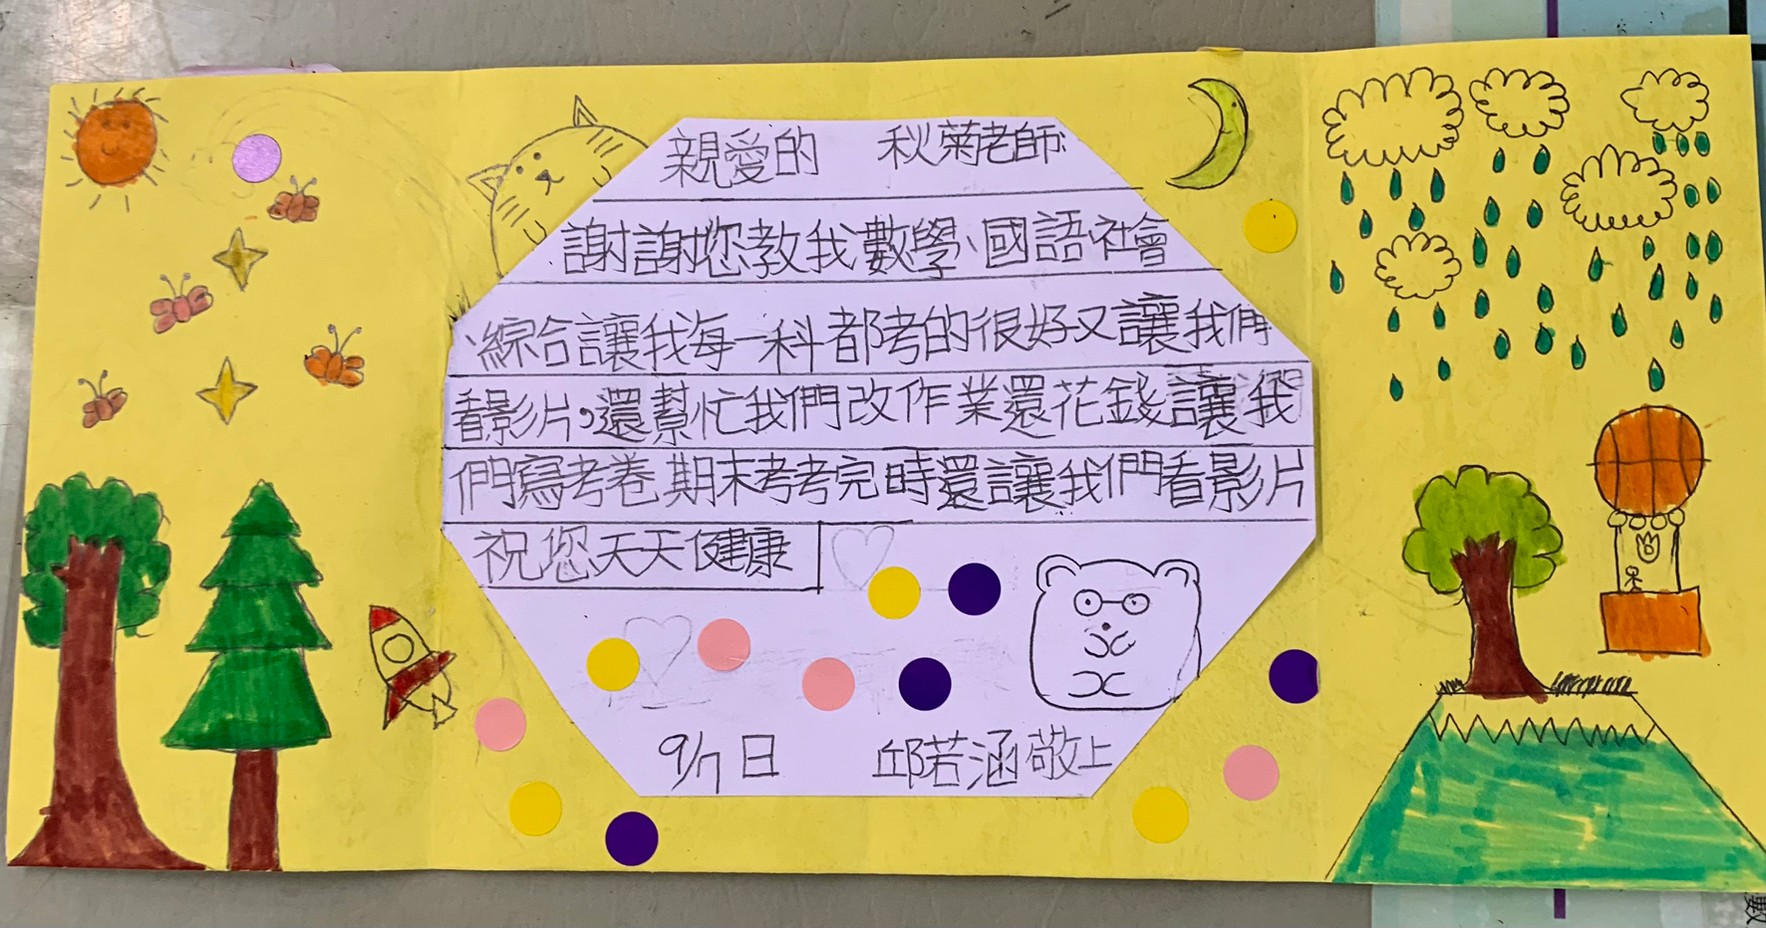 親愛的 秋菊老師
謝謝您教我數學、國語社會
、綜合讓我每一科都考的很好又讓我們
看影片,還幫忙我們改作業還花錢讓我
們寫考卷期末考考完時還讓我們看影片
祝您天天健康
9/7日 邱若涵敬上
數